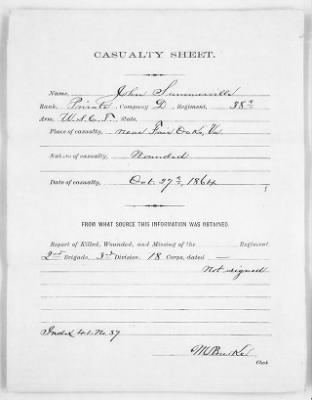 CASUALTY SHEET.
Name, John Summerville
Rank, Private, Company D, Regiment, 38th
Arm, U.S.C.T. State,
Place of casualty, near Fair Oaks, Va
Nature of casualty, Wounded
Date of casualty, Oct. 27th, 1864
FROM WHAT SOURCE THIS INFORMATION WAS OBTAINED.
Report of Killed, Wounded, and Missing of the Regiment,
2nd Brigade, 3d Division, 18 Corps, dated —
Not signed
No. 37
Clerk.